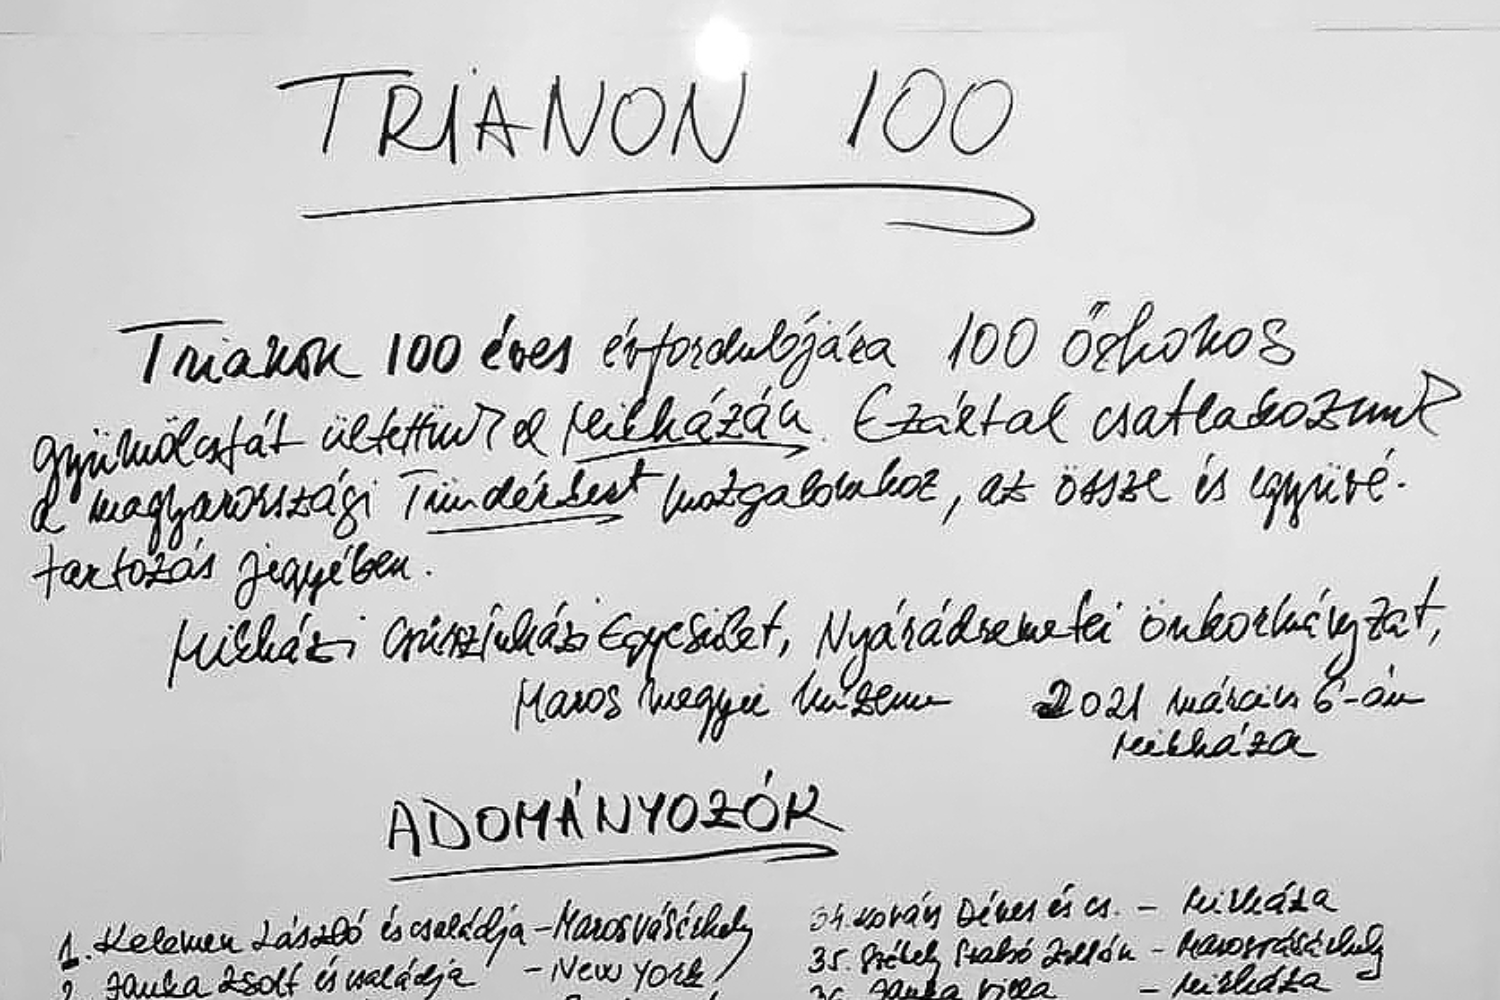 TRIANON 100
Trianon 100 éves évfordulójára 100 őshonos
gyümölcsfát ültettünk el Mikházán. Ezáltal csatlakozunk
a magyarországi Tündérkert mozgalomhoz, az össze és együvé-
tartozás jegyében.
Mikházi Csűrszínházi Egyesület, Nyárádremetei önkormányzat,
Maros megyei múzeum 2021 március 6-án
Mikháza
ADOMÁNYOZÓK
1. Kelemen László és családja - Marosvásárhely
2. Janka Zsolt és családja - New York
34. Kovács Dénes és cs. - Mikháza
35. Székely Szabó Zoltán - Marosvásárhely
36. Janka Villa - Mikháza